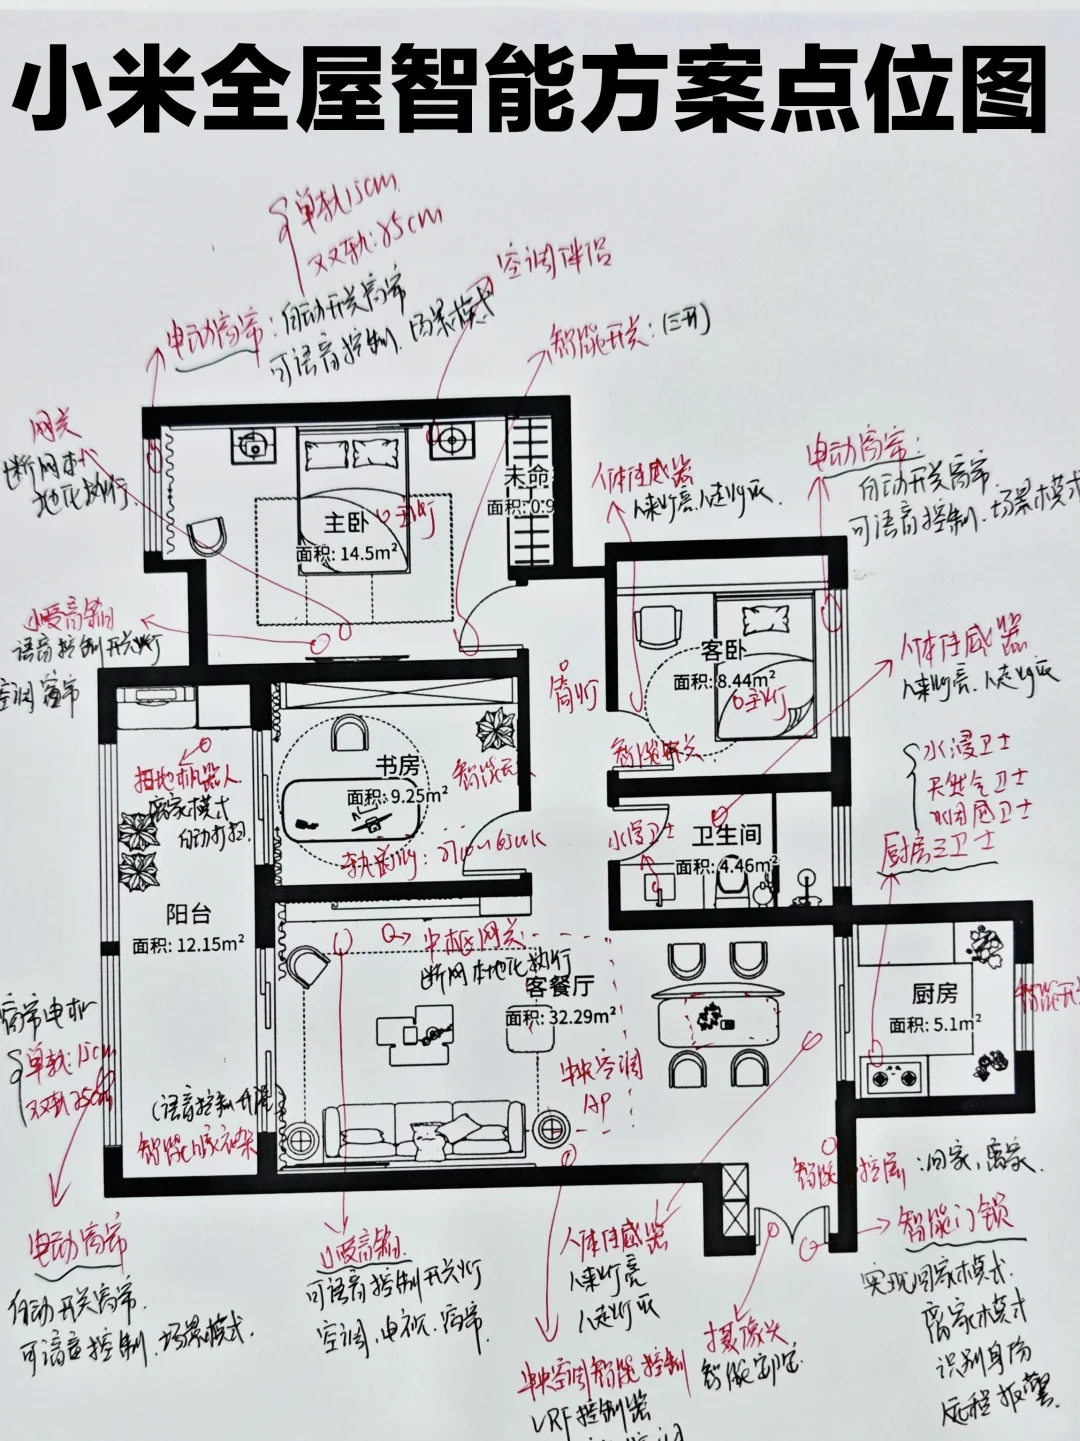 小米全屋智能方案点位图
单轨15cm
双轨:25cm
空调伴侣
电动窗帘:自动开关窗帘
可语音控制.场景模式
智能开关:(三开)
网关
断网本
地化执行
主卧
面积: 14.5m²
主灯
未命
面积: 0.9
人体传感器
人来灯亮.人走灯灭.
电动窗帘:
自动开关窗帘.
可语音控制.场景模式
小爱音箱
语音控制开关灯
空调 窗帘
客卧
面积: 8.44m²
主灯
筒灯
智能开关
人体传感器
人来灯亮.人走灯灭
水浸卫士
天然气卫士
烟感卫士
厨房三卫士
扫地机器人
离家模式
自动打扫.
书房
面积: 9.25m²
智能开
轨道灯:
水浸卫士
卫生间
面积: 4.46m²
阳台
面积: 12.15m²
中枢网关
断网本地化执行
客餐厅
面积: 32.29m²
中央空调
AP
厨房
面积: 5.1m²
智能开
窗帘电机
单轨:15cm
双轨25cm
(语音控制升降)
智能晾衣架
智能中控屏:回家,离家.
智能门锁
实现回家模式.
离家模式
识别身份
远程报警.
电动窗帘
自动开关窗帘.
可语音控制.场景模式.
小爱音箱.
可语音控制开关灯
空调.电视.窗帘.
人体传感器
人来灯亮
人走灯灭
摄像头
智能
中央空调智能控制
VRF控制器